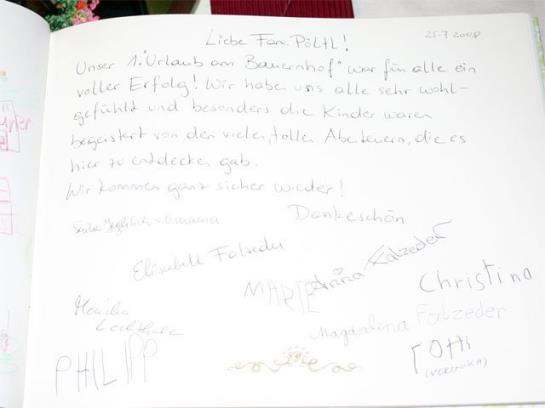 Liebe Fam. Pöltl!
25.7.2008
Unser 1. "Urlaub am Bauernhof" war für alle ein
voller Erfolg! Wir haben uns alle sehr wohl-
gefühlt und besonders die Kinder waren
begeistert von den vielen, tollen Abenteuern, die es
hier zu entdecken gab.
Wir kommen ganz sicher wieder!
Dankeschön
Elisabeth Falzeder
MARIE Anna Falzeder
Christina
Monika
Magdalena Falzeder
PHILIPP